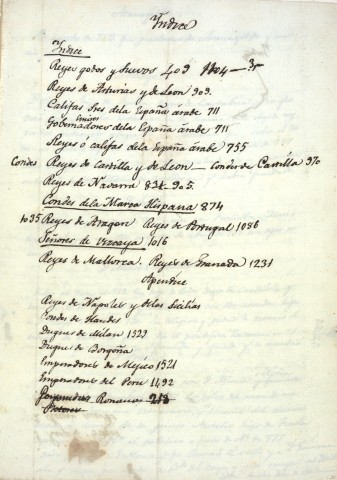 Yndice
Yndice
Reyes godos y suevos 409
Reyes de Asturias y de Leon 909.
Califas Ares dela España árabe 711
Gobernadores Emires dela España árabe 711
Reyes ó califas dela España árabe 755
Condes Reyes de Castilla y de Leon — Condes de Castilla 970
Reyes de Navarra 834 905.
Condes dela Marca Hispana 874
1035 Reyes de Aragon Reyes de Portugal 1086
Señores de Vizcaya 1016
Reyes de Mallorca. Reyes de Granada 1231
Apendice
Reyes de Napoles y delas Sicilias
Condes de Flandes
Duques de Milan 1529
Duque de Borgoña
Emperadores de Mejico 1521
Emperadores del Peru 1492
Romanos 218
Pretores